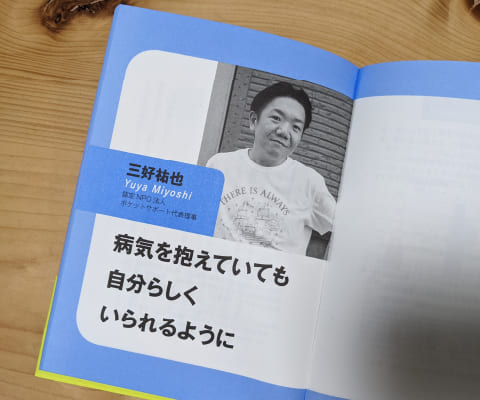 三好祐也
Yuya Miyoshi
認定NPO法人
ポケットサポート代表理事
THERE IS ALWAYS
病気を抱えていても
自分らしく
いられるように